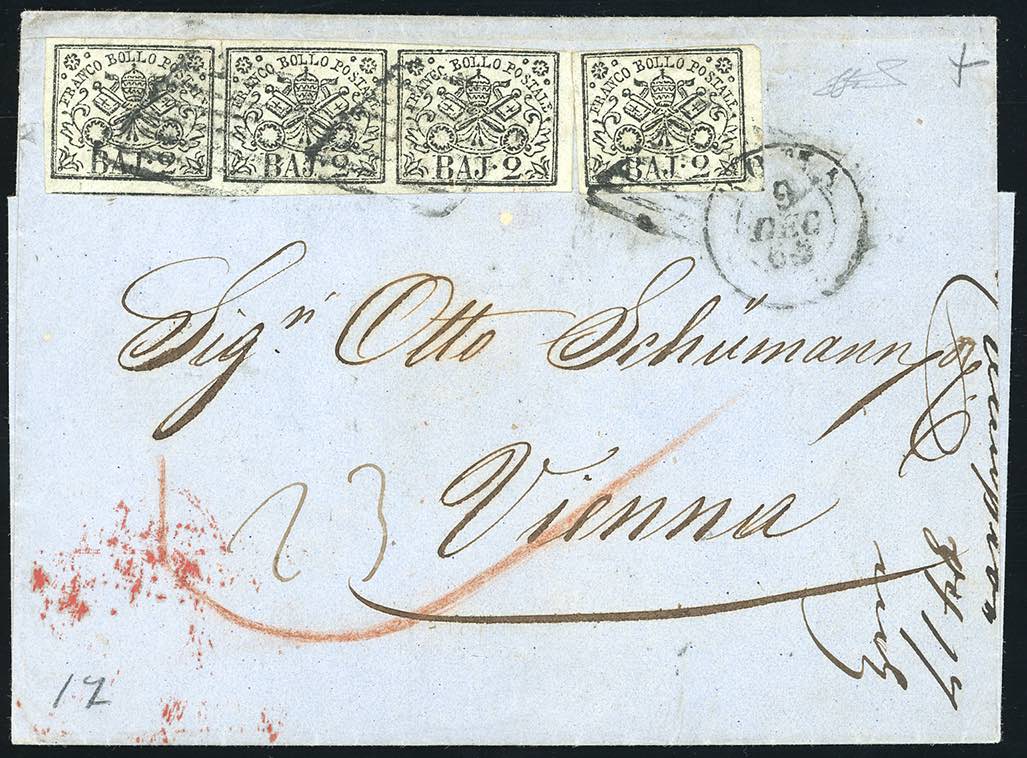 FRANCO BOLLO POSTALE FRANCO BOLLO POSTALE FRANCO BOLLO POSTALE FRANCO BOLLO POSTALE
BAJ·2 BAJ·2 BAJ·2 BAJ·2
9
DEC
63
Sigⁿ Otto Schümann & C
Vienna
23
12